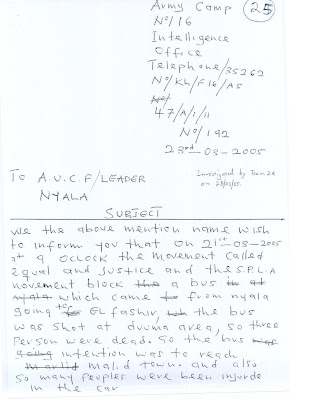 Army Camp
25
No/16
Intelligence
Office
Telephone/35262
No/Kh/F16/A5
No/
47/A/1/11
No/192
23rd-03-2005
To A.U.C.F/LEADER
NYALA
Investigated by Team 24
on 28/03/05.
SUBJECT
We the above mention name wish
to inform you that on 21st-03-2005
at 9 OCLOCK the movement called
Equal and Justice and the S.P.L.A
movement block the a bus in at
nyala which came to from nyala
going to EL fashir, wh the bus
was shot at duuma area, so three
Person were dead. So the bus was
going intention was to reach
marlid malid town. and also
so many peoples were been injurde
in the car